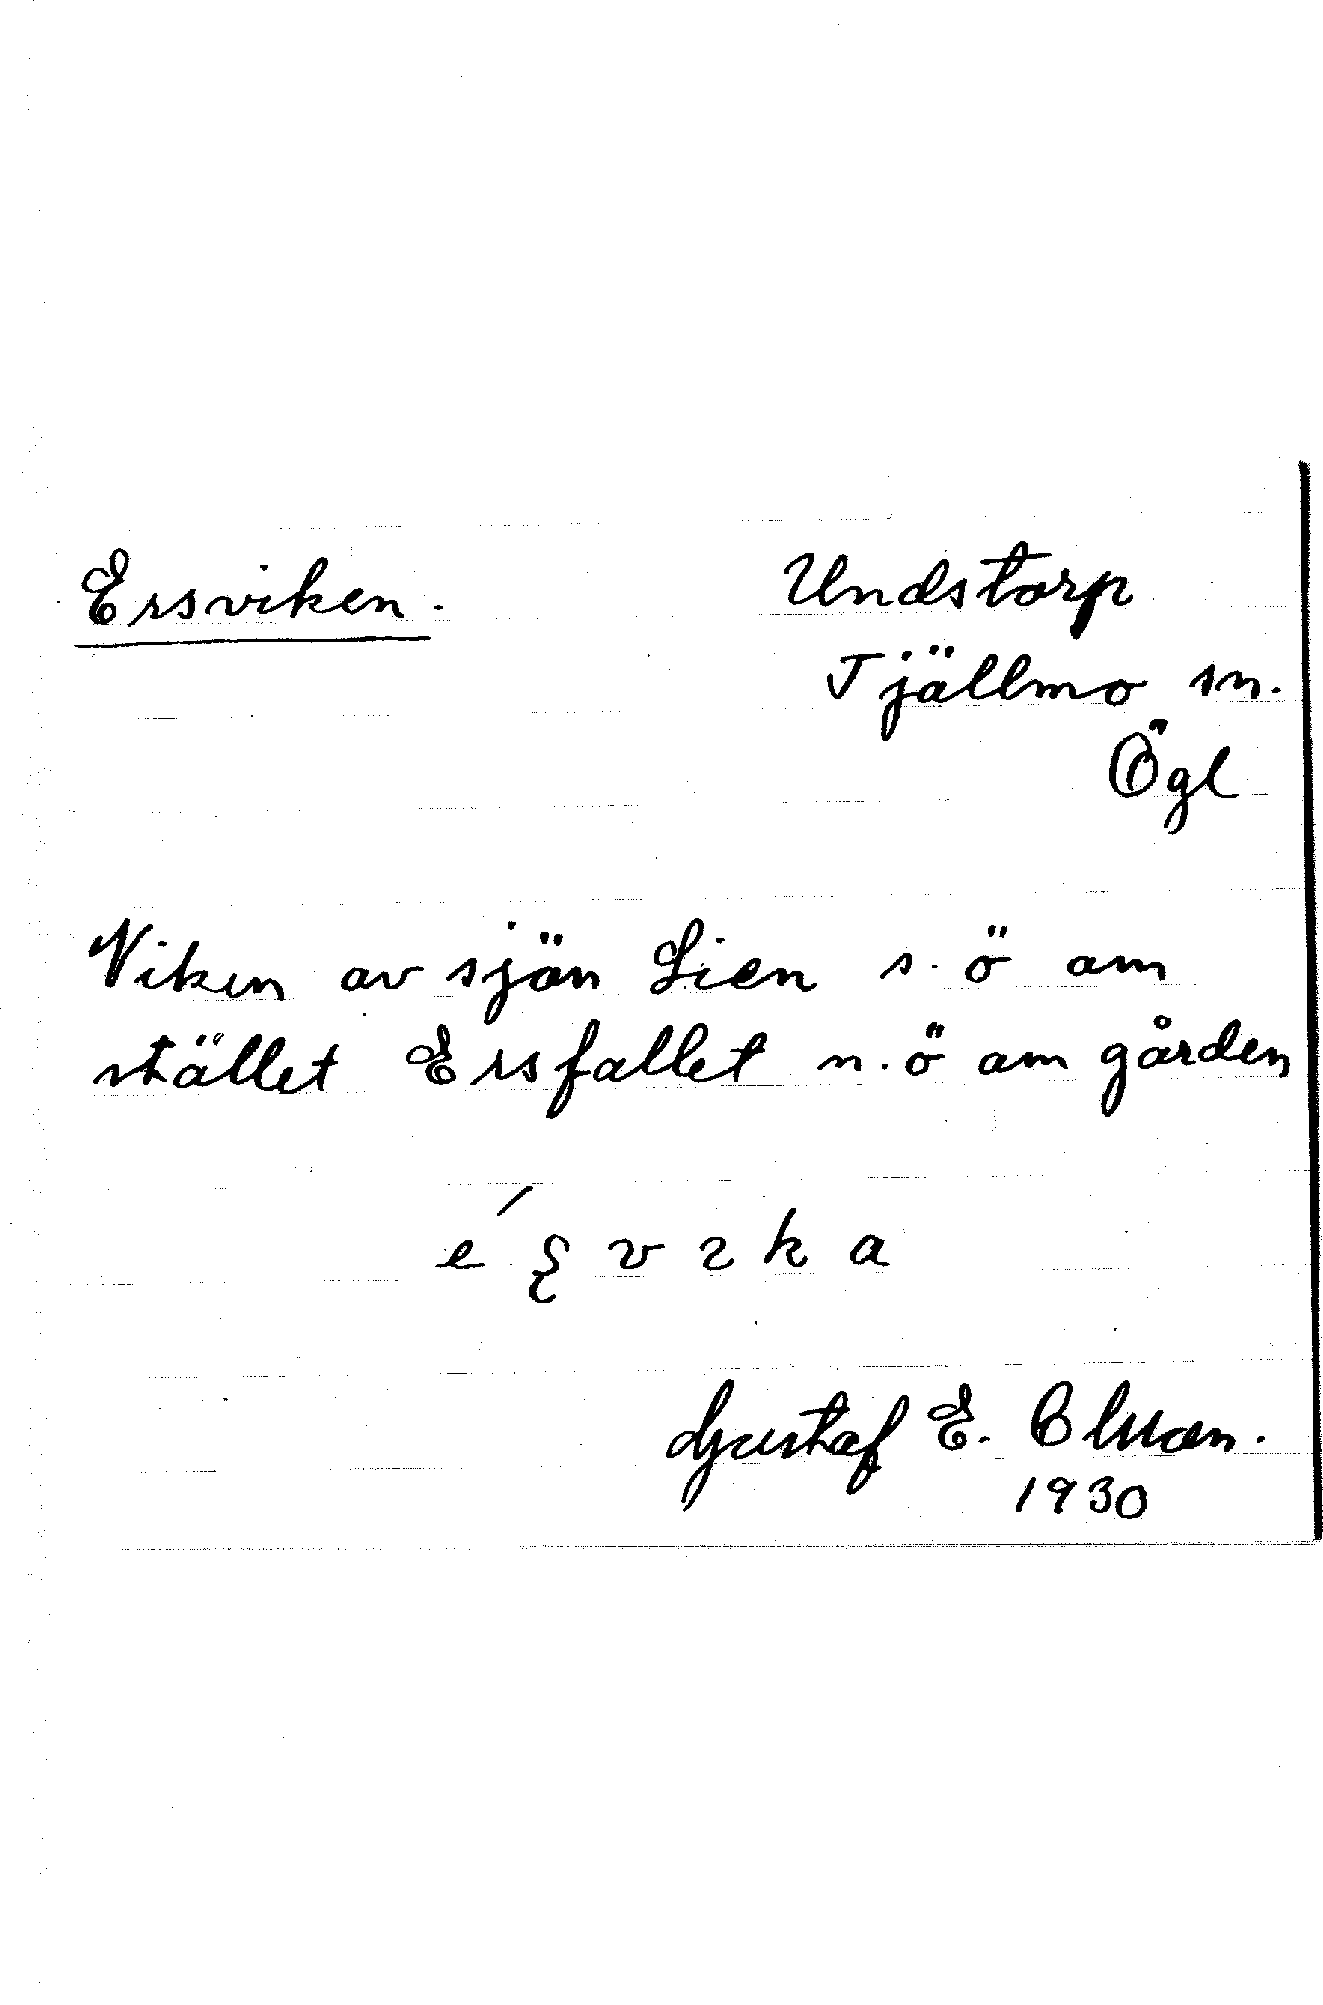 Ersviken.
Undstorp
Tjällmo sn.
Ögl
Viken av sjön Lien s.ö om
stället Ersfallet n.ö om gården
Gustaf E.
1930